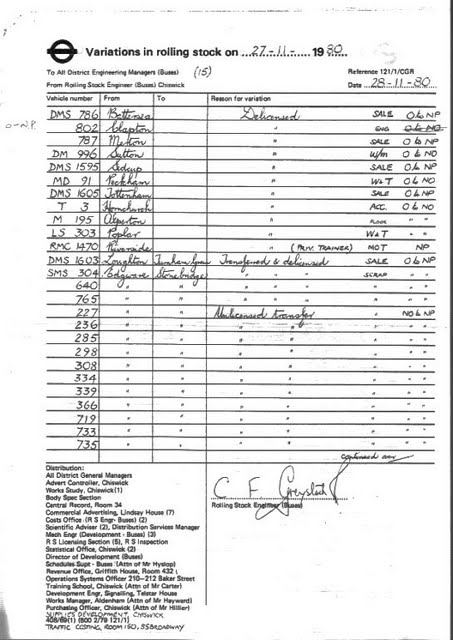 Variations in rolling stock on 27-11- 1980
To All District Engineering Managers (Buses) (15) Reference 121/1/CGR
From Rolling Stock Engineer (Buses) Chiswick Date 28-11-80
Vehicle number From To Reason for variation
O-N.P.
DMS 786 Battersea Delicensed SALE O to NP
802 Clapton " " O to NO
787 Merton " SALE O to NP
DM 996 Sutton " U/M O to NO
DMS 1595 Sidcup " SALE O to NP
MD 91 Peckham " W&T O to NO
DMS 1605 Tottenham " SALE O to NP
T 3 Hornchurch " ACC. O to NO
M 195 Alperton " FLOOR " "
LS 303 Poplar " W&T " "
RMC 1470 Riverside " (PRIV. TRAINER) MOT NP
DMS 1603 Loughton Turnham Green Transferred & delicensed SALE O to NP
SMS 304 Edgware Stonebridge " " " SCRAP " "
640 " " " " " " "
765 " " " " " " "
227 " " Unlicensed transfer " NO to NP
236 " " " " " " "
285 " " " " " " "
298 " " " " " " "
308 " " " " " " "
334 " " " " " " "
339 " " " " " " "
366 " " " " " " "
719 " " " " " " "
733 " " " " " " "
735 " " " " " " "
continued over
Distribution:
All District General Managers
Advert Controller, Chiswick
Works Study, Chiswick (1)
Body Spec Section
Central Record, Room 34
Commercial Advertising, Lindsay House (7)
Costs Office (R S Engr- Buses) (2)
Scientific Adviser (2), Distribution Services Manager
Mech Engr (Development - Buses) (3)
R S Licensing Section (5), R S Inspection
Statistical Office, Chiswick (2)
Director of Development (Buses)
Schedules Supt - Buses (Attn of Mr Hyslop)
Revenue Office, Griffith House, Room 432
Operations Systems Officer 210-212 Baker Street
Training School, Chiswick (Attn of Mr Carter)
Development Engr, Signalling, Telstar House
Works Manager, Aldenham (Attn of Mr Hayward)
Purchasing Officer, Chiswick (Attn of Mr Hillier)
SUPPLIES DEVELOPMENT, CHISWICK
408/69(1) (800 2/79 121/1)
TRAFFIC COSTING, ROOM 150, 55 BROADWAY
C F
Rolling Stock Engineer (Buses)